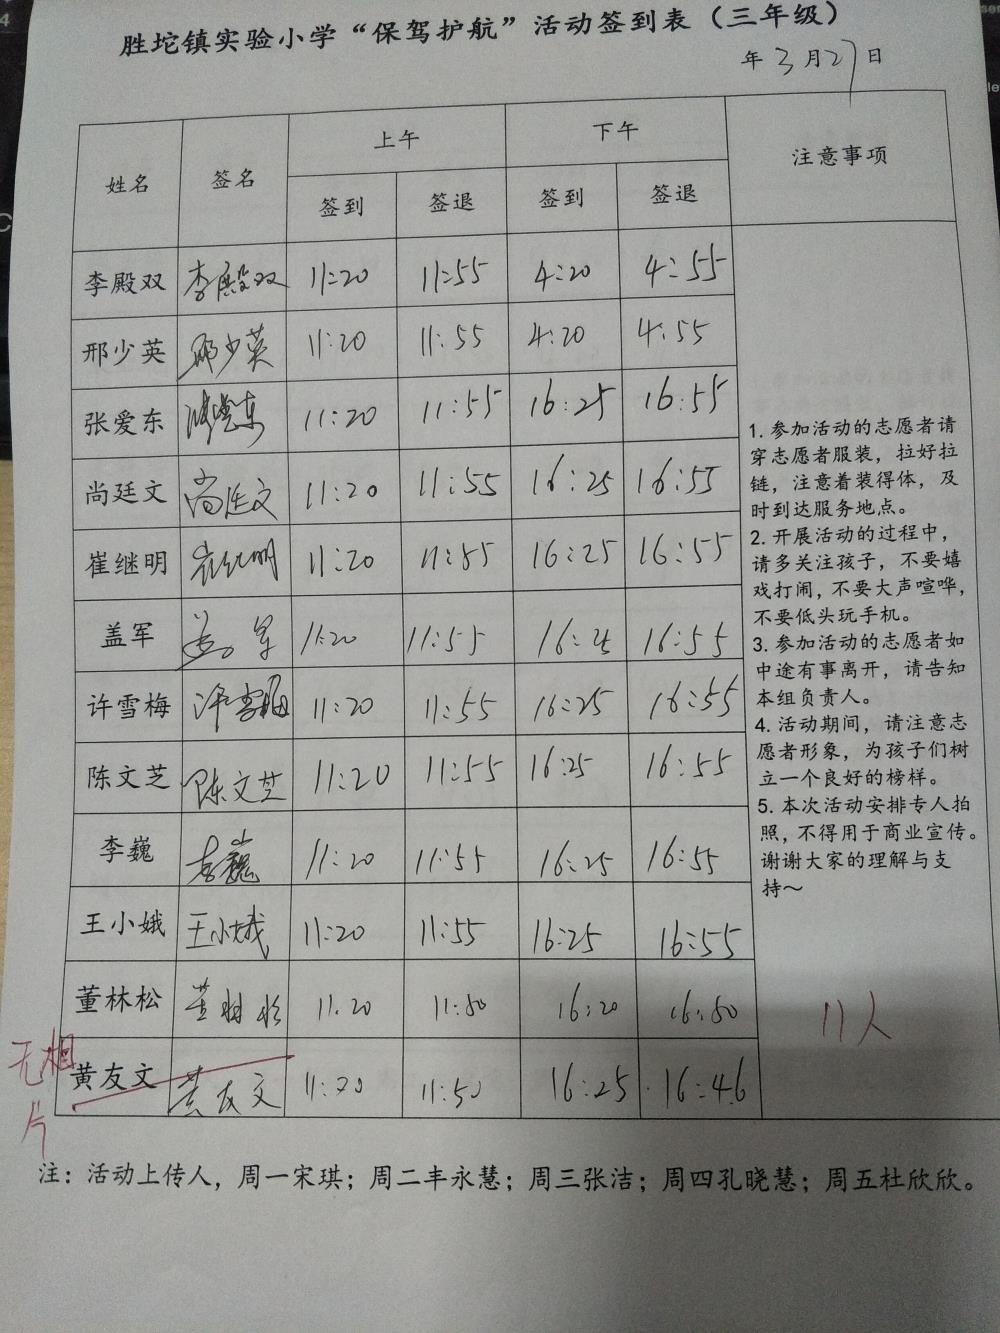 胜坨镇实验小学“保驾护航”活动签到表（三年级）
年3月27日
姓名 签名 上午 下午 注意事项
签到 签退 签到 签退
李殿双 李殿双 11:20 11:55 4:20 4:55
邢少英 邢少英 11:20 11:55 4:20 4:55
张爱东 张爱东 11:20 11:55 16:25 16:55
尚廷文 尚廷文 11:20 11:55 16:25 16:55
崔继明 崔继明 11:20 11:55 16:25 16:55
盖军 盖军 11:20 11:55 16:25 16:55
许雪梅 许雪梅 11:20 11:55 16:25 16:55
陈文芝 陈文芝 11:20 11:55 16:25 16:55
李巍 李巍 11:20 11:55 16:25 16:55
王小娥 王小娥 11:20 11:55 16:25 16:55
董林松 董林松 11:20 11:50 16:20 16:50
黄友文 黄友文 11:20 11:50 16:25 16:46
1. 参加活动的志愿者请
穿志愿者服装，拉好拉
链，注意着装得体，及
时到达服务地点。
2. 开展活动的过程中，
请多关注孩子，不要嬉
戏打闹，不要大声喧哗，
不要低头玩手机。
3. 参加活动的志愿者如
中途有事离开，请告知
本组负责人。
4. 活动期间，请注意志
愿者形象，为孩子们树
立一个良好的榜样。
5. 本次活动安排专人拍
照，不得用于商业宣传。
谢谢大家的理解与支
持～
11人
无相
片
注：活动上传人，周一宋琪；周二丰永慧；周三张洁；周四孔晓慧；周五杜欣欣。